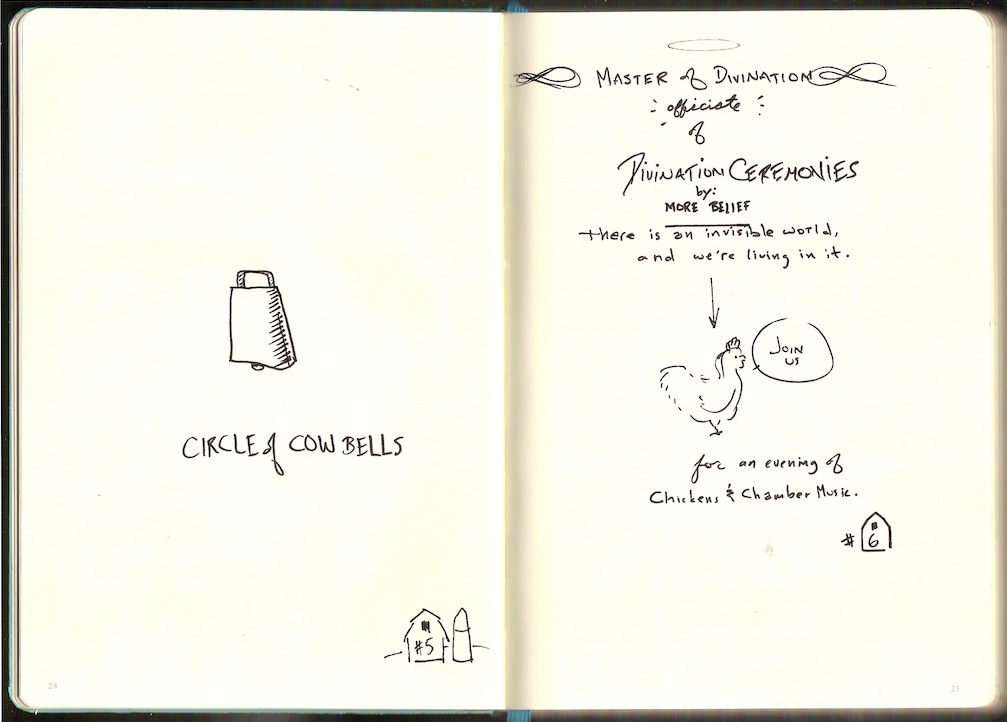 CIRCLE of COW BELLS
#5
24
MASTER of DIVINATION
officiate
of
DIVINATION CEREMONIES
by:
MORE BELIEF
there is an invisible world,
and we're living in it.
JOIN
US
for an evening of
Chickens & Chamber Music.
# 6
25